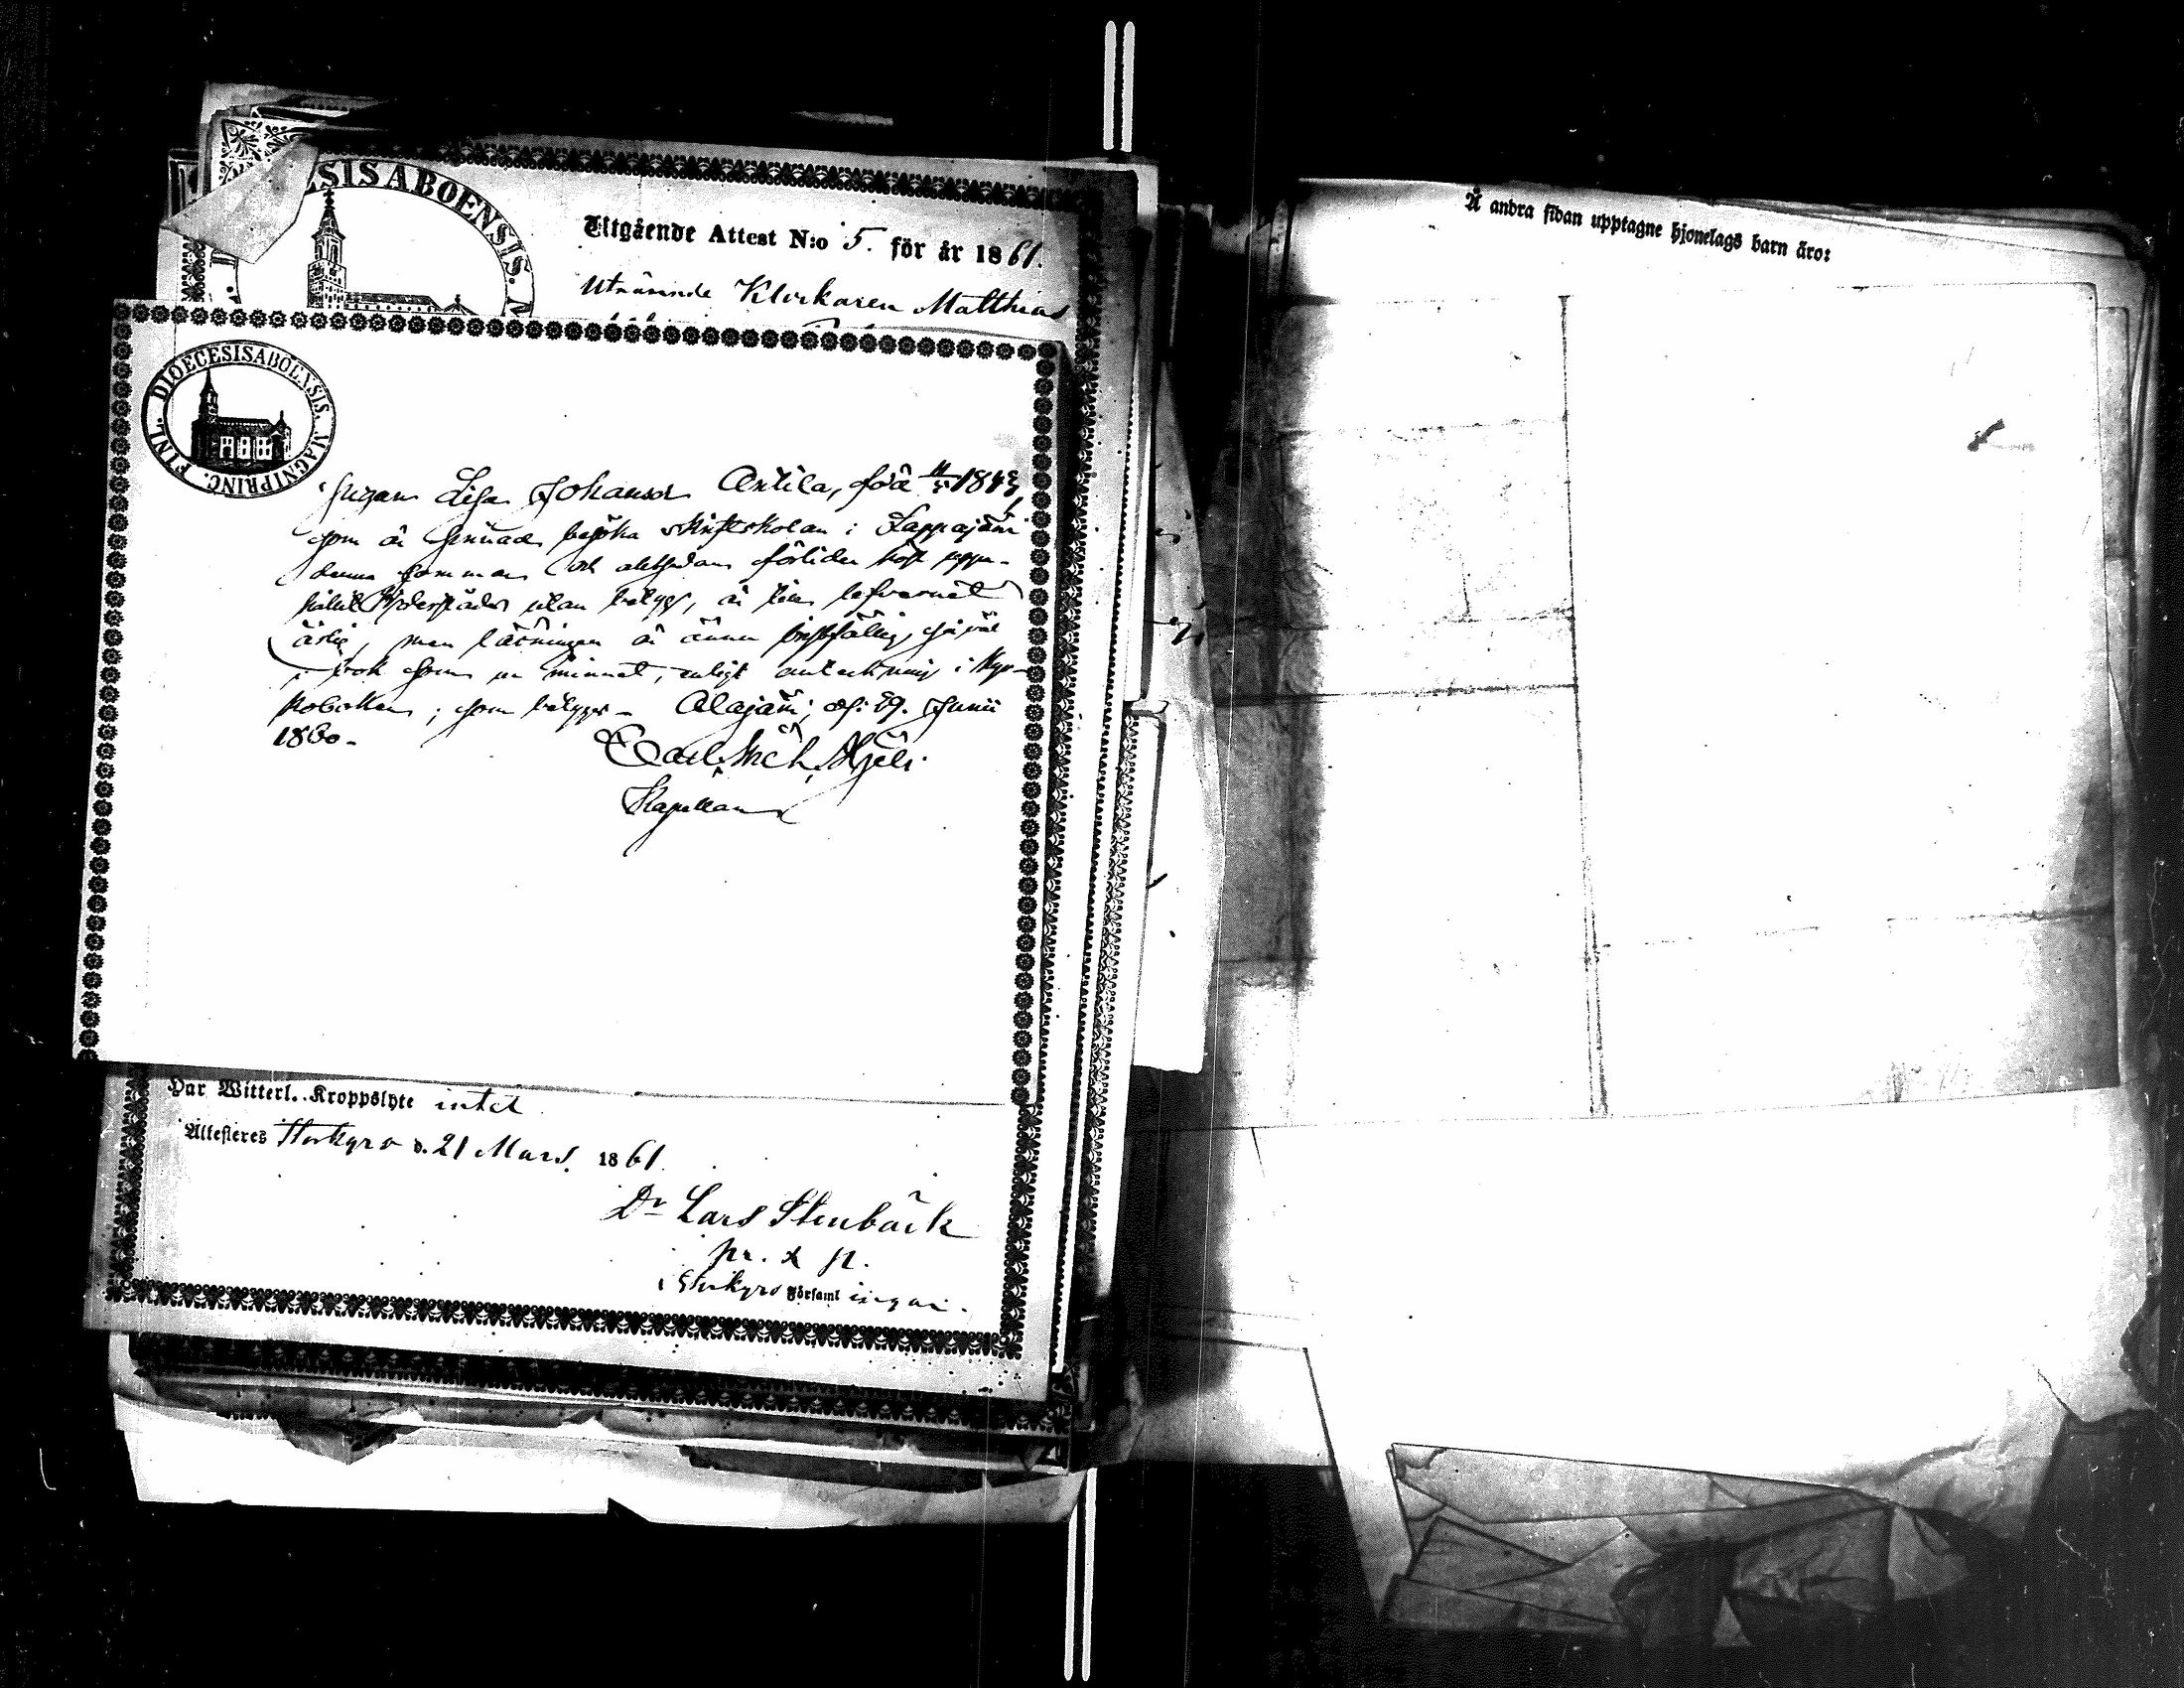 SIS ABOENSIS. M
Utgående Attest N:o 5. för år 1861.
Utnämnde Klockaren Matthias
DIOECESIS ABOENSIS. MAGNI PRINC. FINL.
Susan Lisa Johansd Antila, född 11/5 1843,
som är sinnad besöka skriftskolan i Lappajärvi
denna sommar och alltsedan förliden höst uppe-
hållit utan betyg, är till lefvernet
ärlig, men läsningen är ännu bristfällig, såväl
i bok som ur minnet, enligt anteckning i Kyr-
koboken; som betygar – Alajärvi, d. 29. Junii
1860.
Carl Mich. Kjell
Kapellan
Har Witterl. Kroppslyte intet
Attesteres Storkyro d. 21 Mars 1861.
Dr Lars Stenbäck
pr. & p.
i Storkyro Församlingar.
Å andra sidan upptagne hjonelags barn äro: